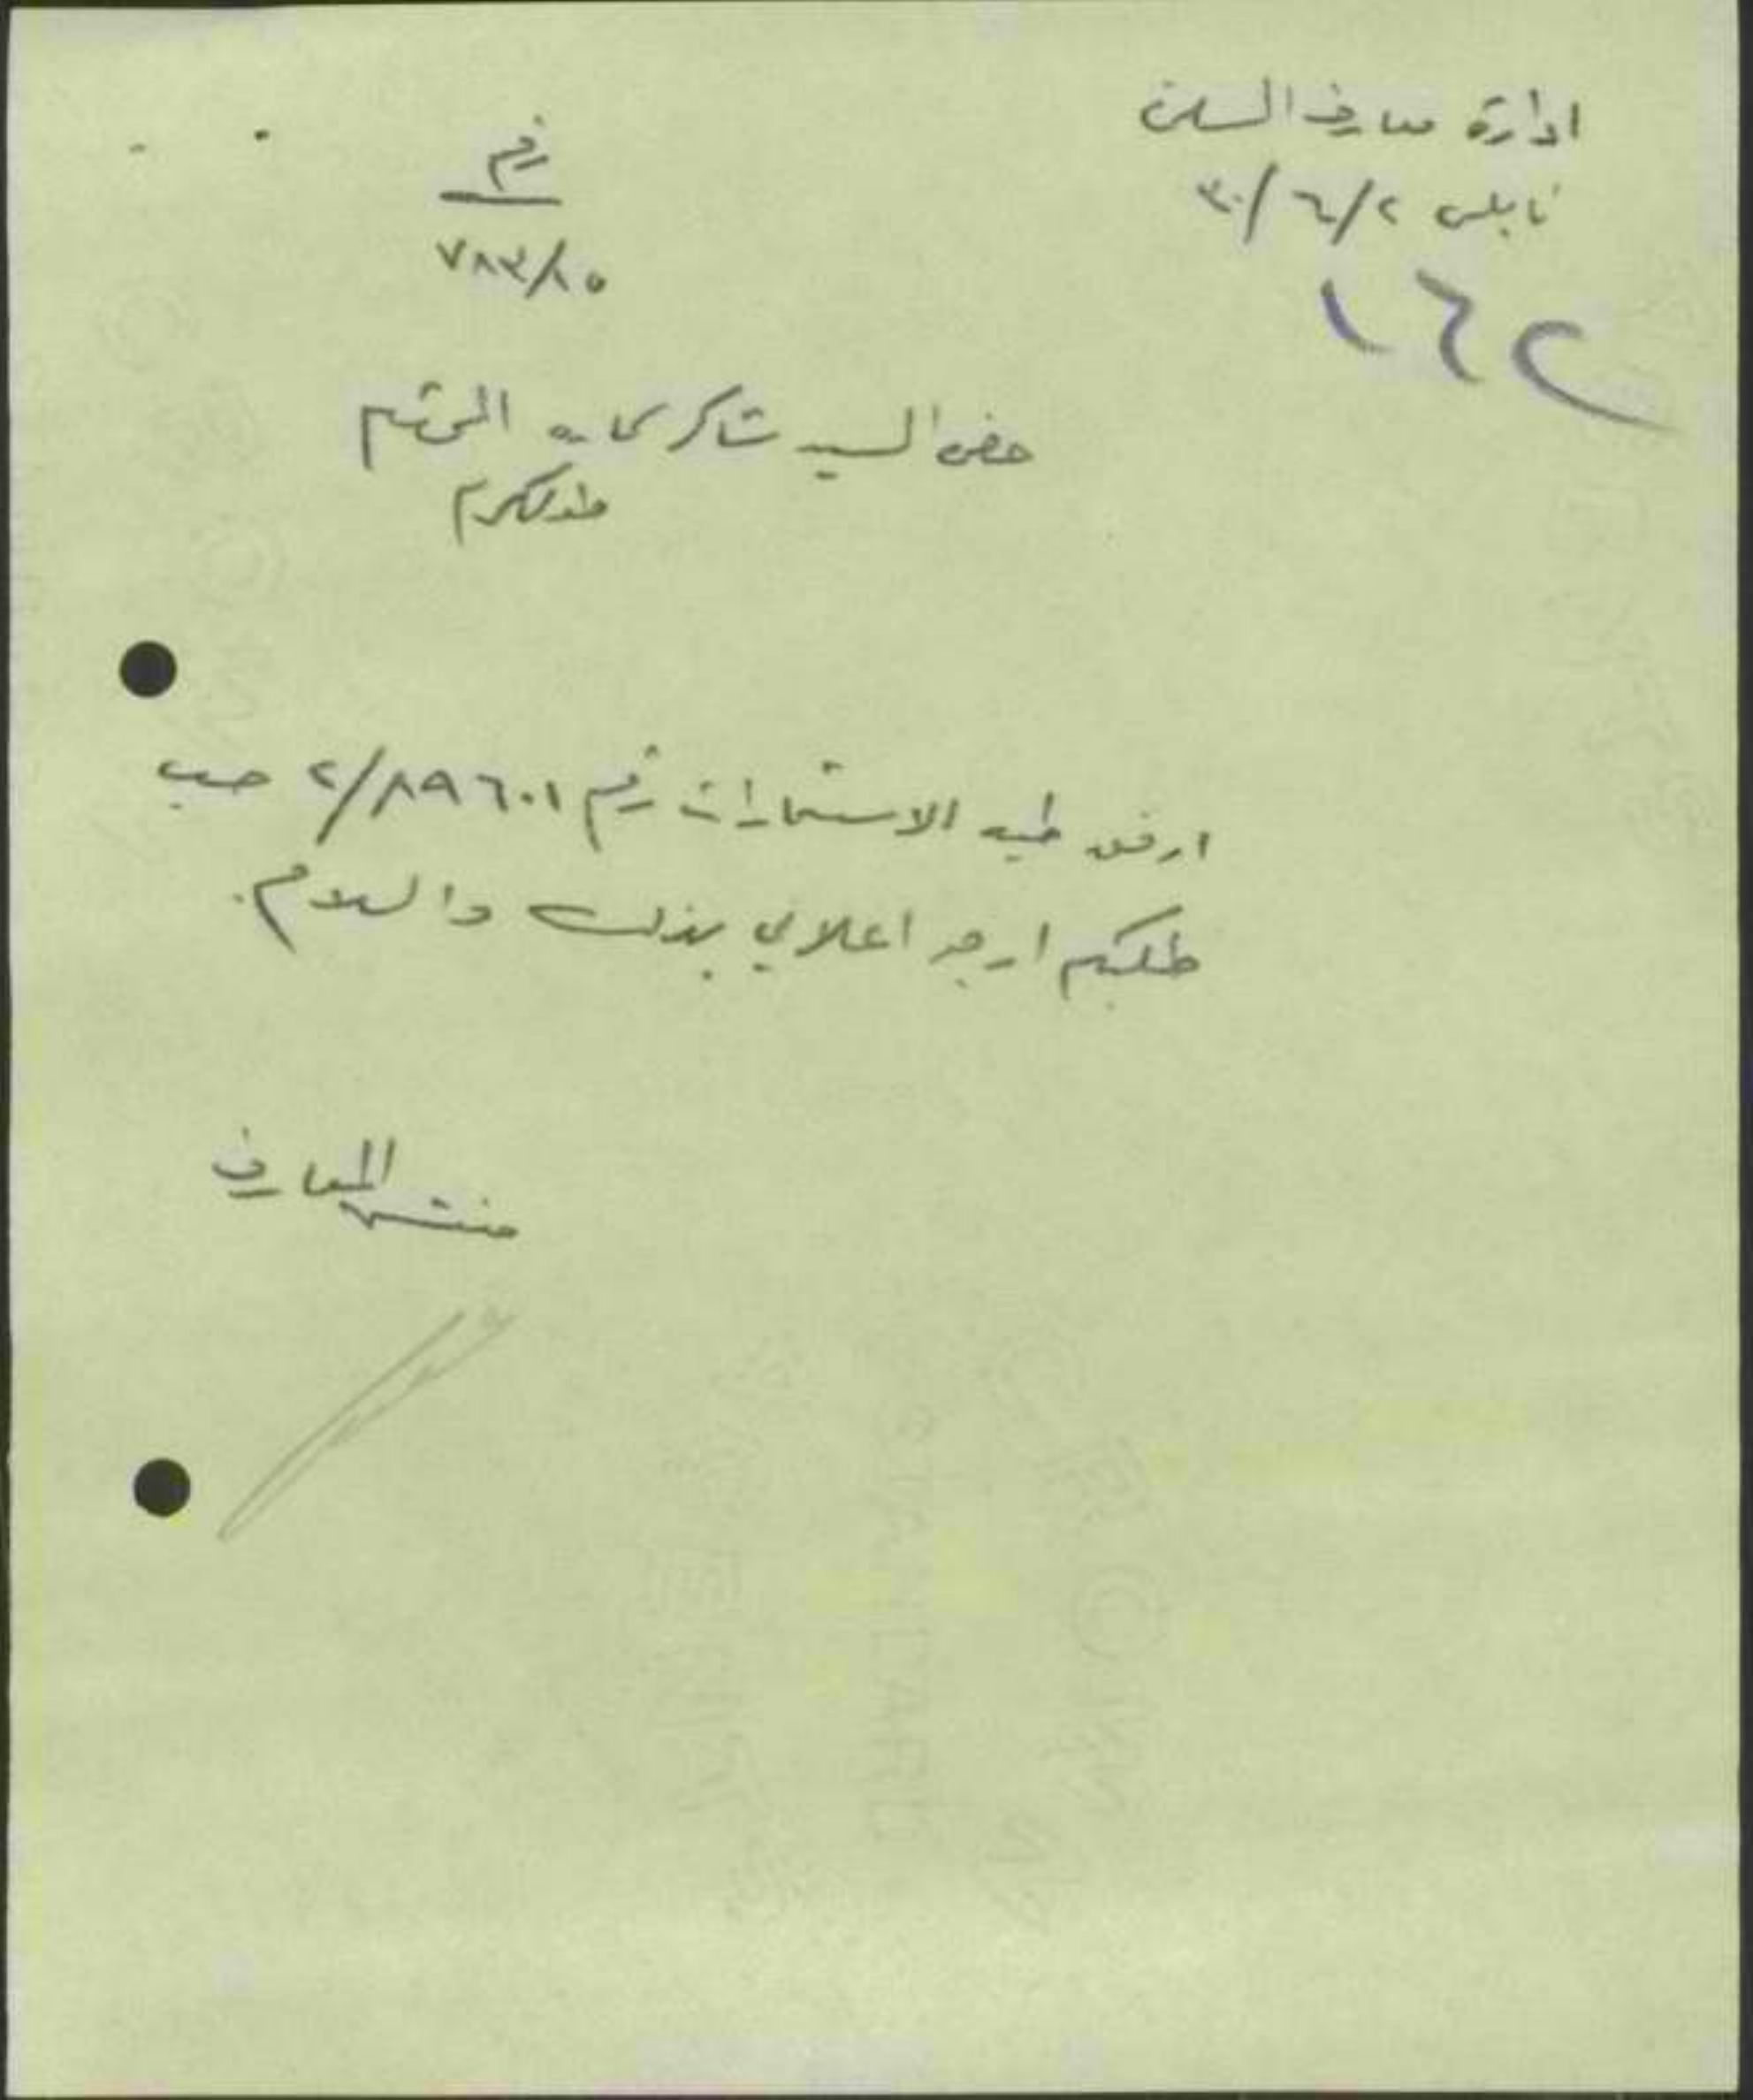 ادارة معارف السامرة
نابلس ٢/٦/٣٠
١٦٢
رقم
٧٨٣/١٥
حضرة السيد شاكر المحترم
طولكرم
ارفق طيه الاستمارات رقم ٢/٨٩٦٠١ حسب
طلبكم ارجو اعلامي بذلك والسلام.
مفتش المعارف